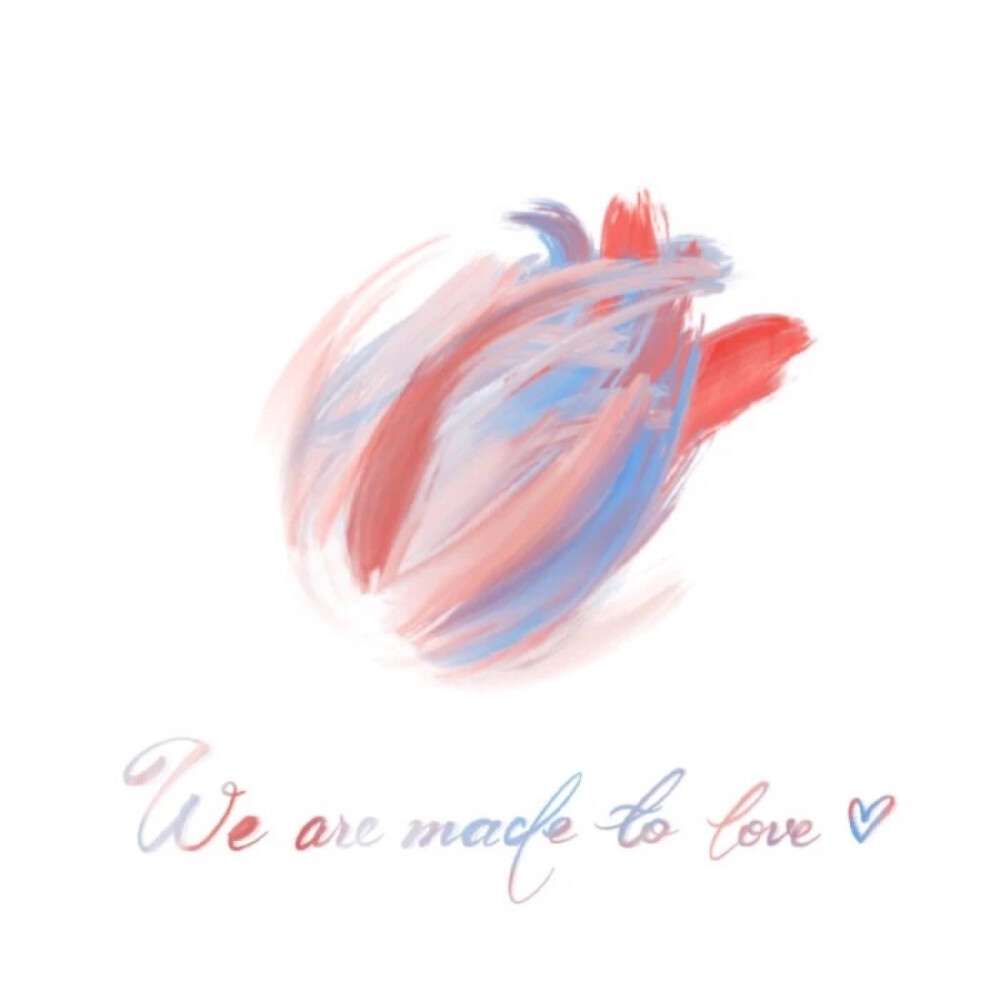 We are made to love ♡